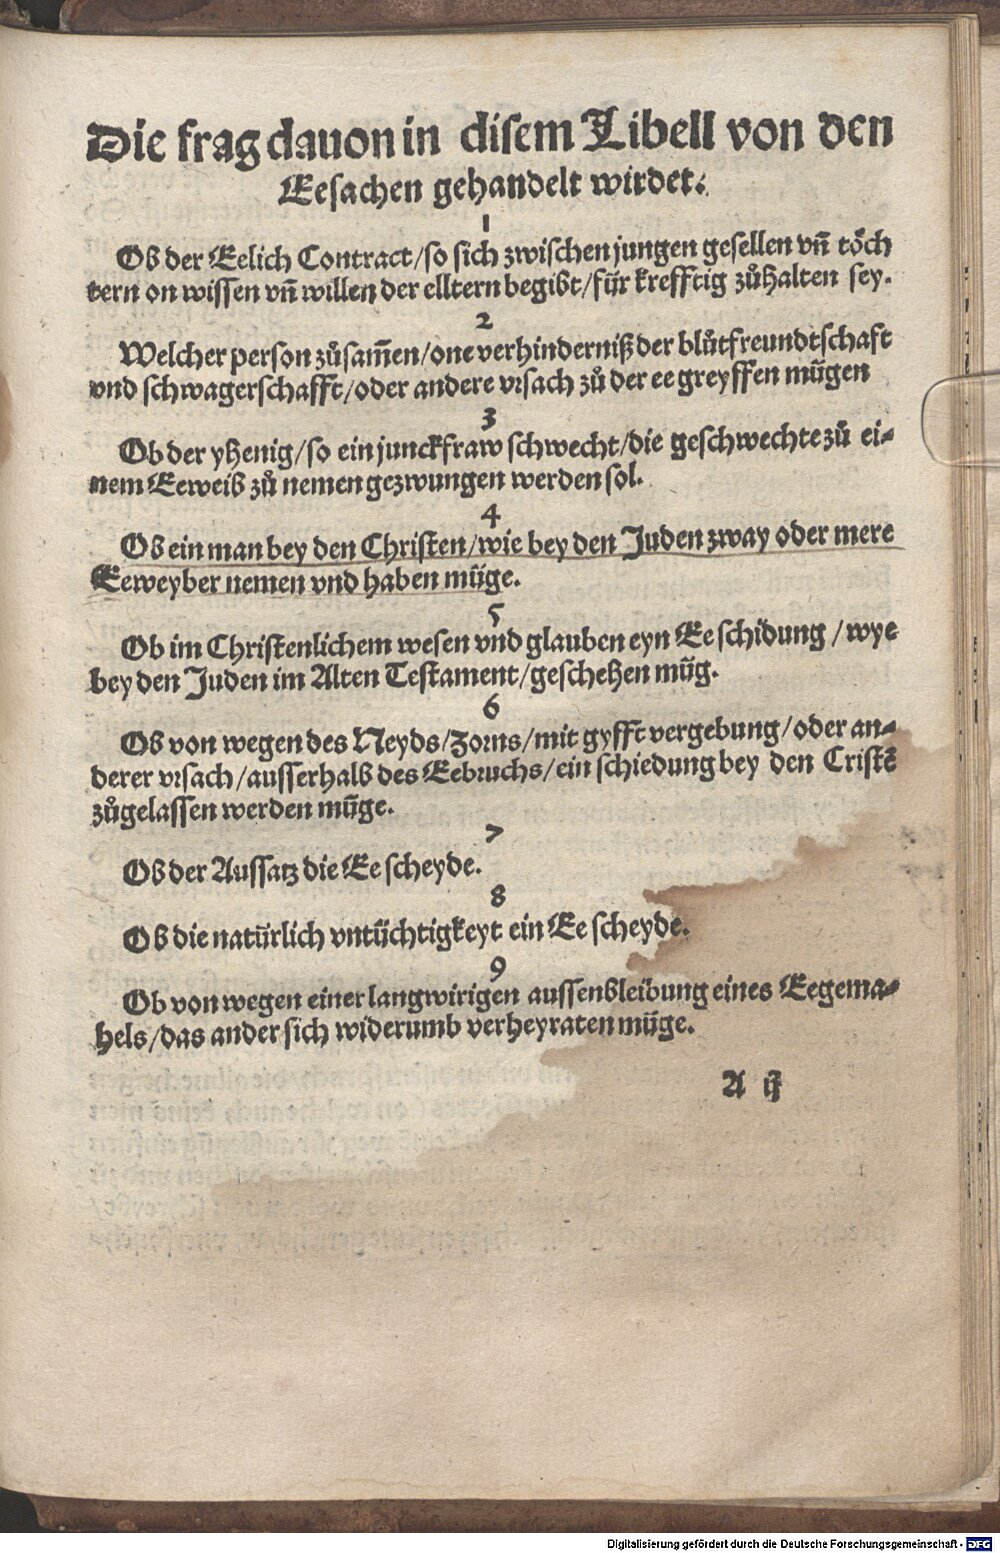 Die frag dauon in disem Libell von den
Eesachen gehandelt wirdet.
1
Ob der Eelich Contract/so sich zwischen jungen gesellen vn̄ töch
tern on wissen vn̄ willen der elltern begibt/für krefftig zůhalten sey.
2
Welcher person zůsam̄en/one verhinderniß der blůtfreundtschaft
vnd schwagerschafft/oder andere vrsach zů der ee greyffen mügen
3
Ob der yhenig/so ein junckfraw schwecht/die geschwechte zů ei-
nem Eeweib zů nemen gezwungen werden sol.
4
Ob ein man bey den Christen/wie bey den Juden zway oder mere
Eeweyber nemen vnd haben müge.
5
Ob im Christenlichem wesen vnd glauben eyn Ee schidung/wye
bey den Juden im Alten Testament/geschehen müg.
6
Ob von wegen des Neyds/Zorns/mit gyfft vergebung/oder an-
derer vrsach/ausserhalb des Eebruchs/ein schiedung bey den Cristē
zůgelassen werden müge.
7
Ob der Aussatz die Ee scheyde.
8
Ob die natürlich vntüchtigkeyt ein Ee scheyde.
9
Ob von wegen einer langwirigen aussenbleibung eines Eegema-
hels/das ander sich widerumb verheyraten müge.
A ij
Digitalisierung gefördert durch die Deutsche Forschungsgemeinschaft - DFG